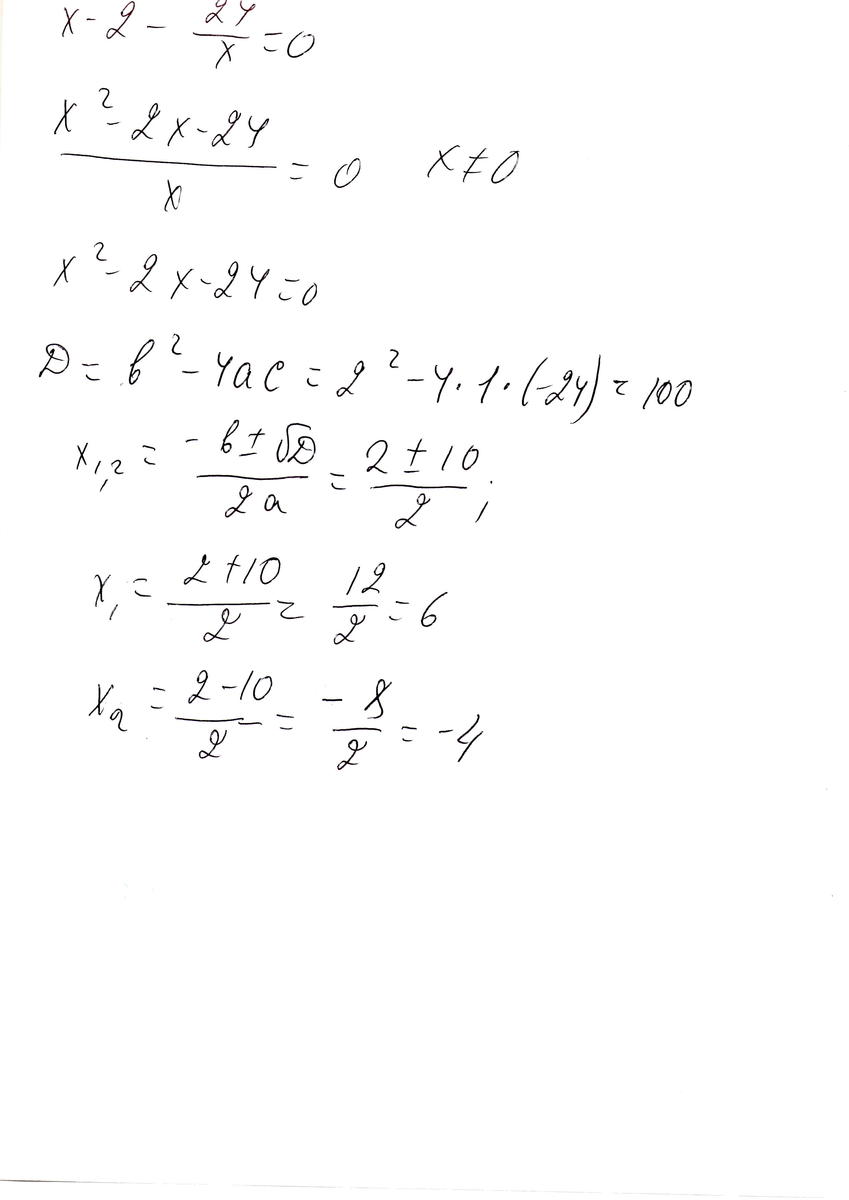 x - 2 - 24/x = 0
(x² - 2x - 24)/x = 0    x ≠ 0
x² - 2x - 24 = 0
D = b² - 4ac = 2² - 4 · 1 · (-24) = 100
x₁,₂ = (-b ± √D)/(2a) = (2 ± 10)/2 ;
x₁ = (2 + 10)/2 = 12/2 = 6
x₂ = (2 - 10)/2 = -8/2 = -4